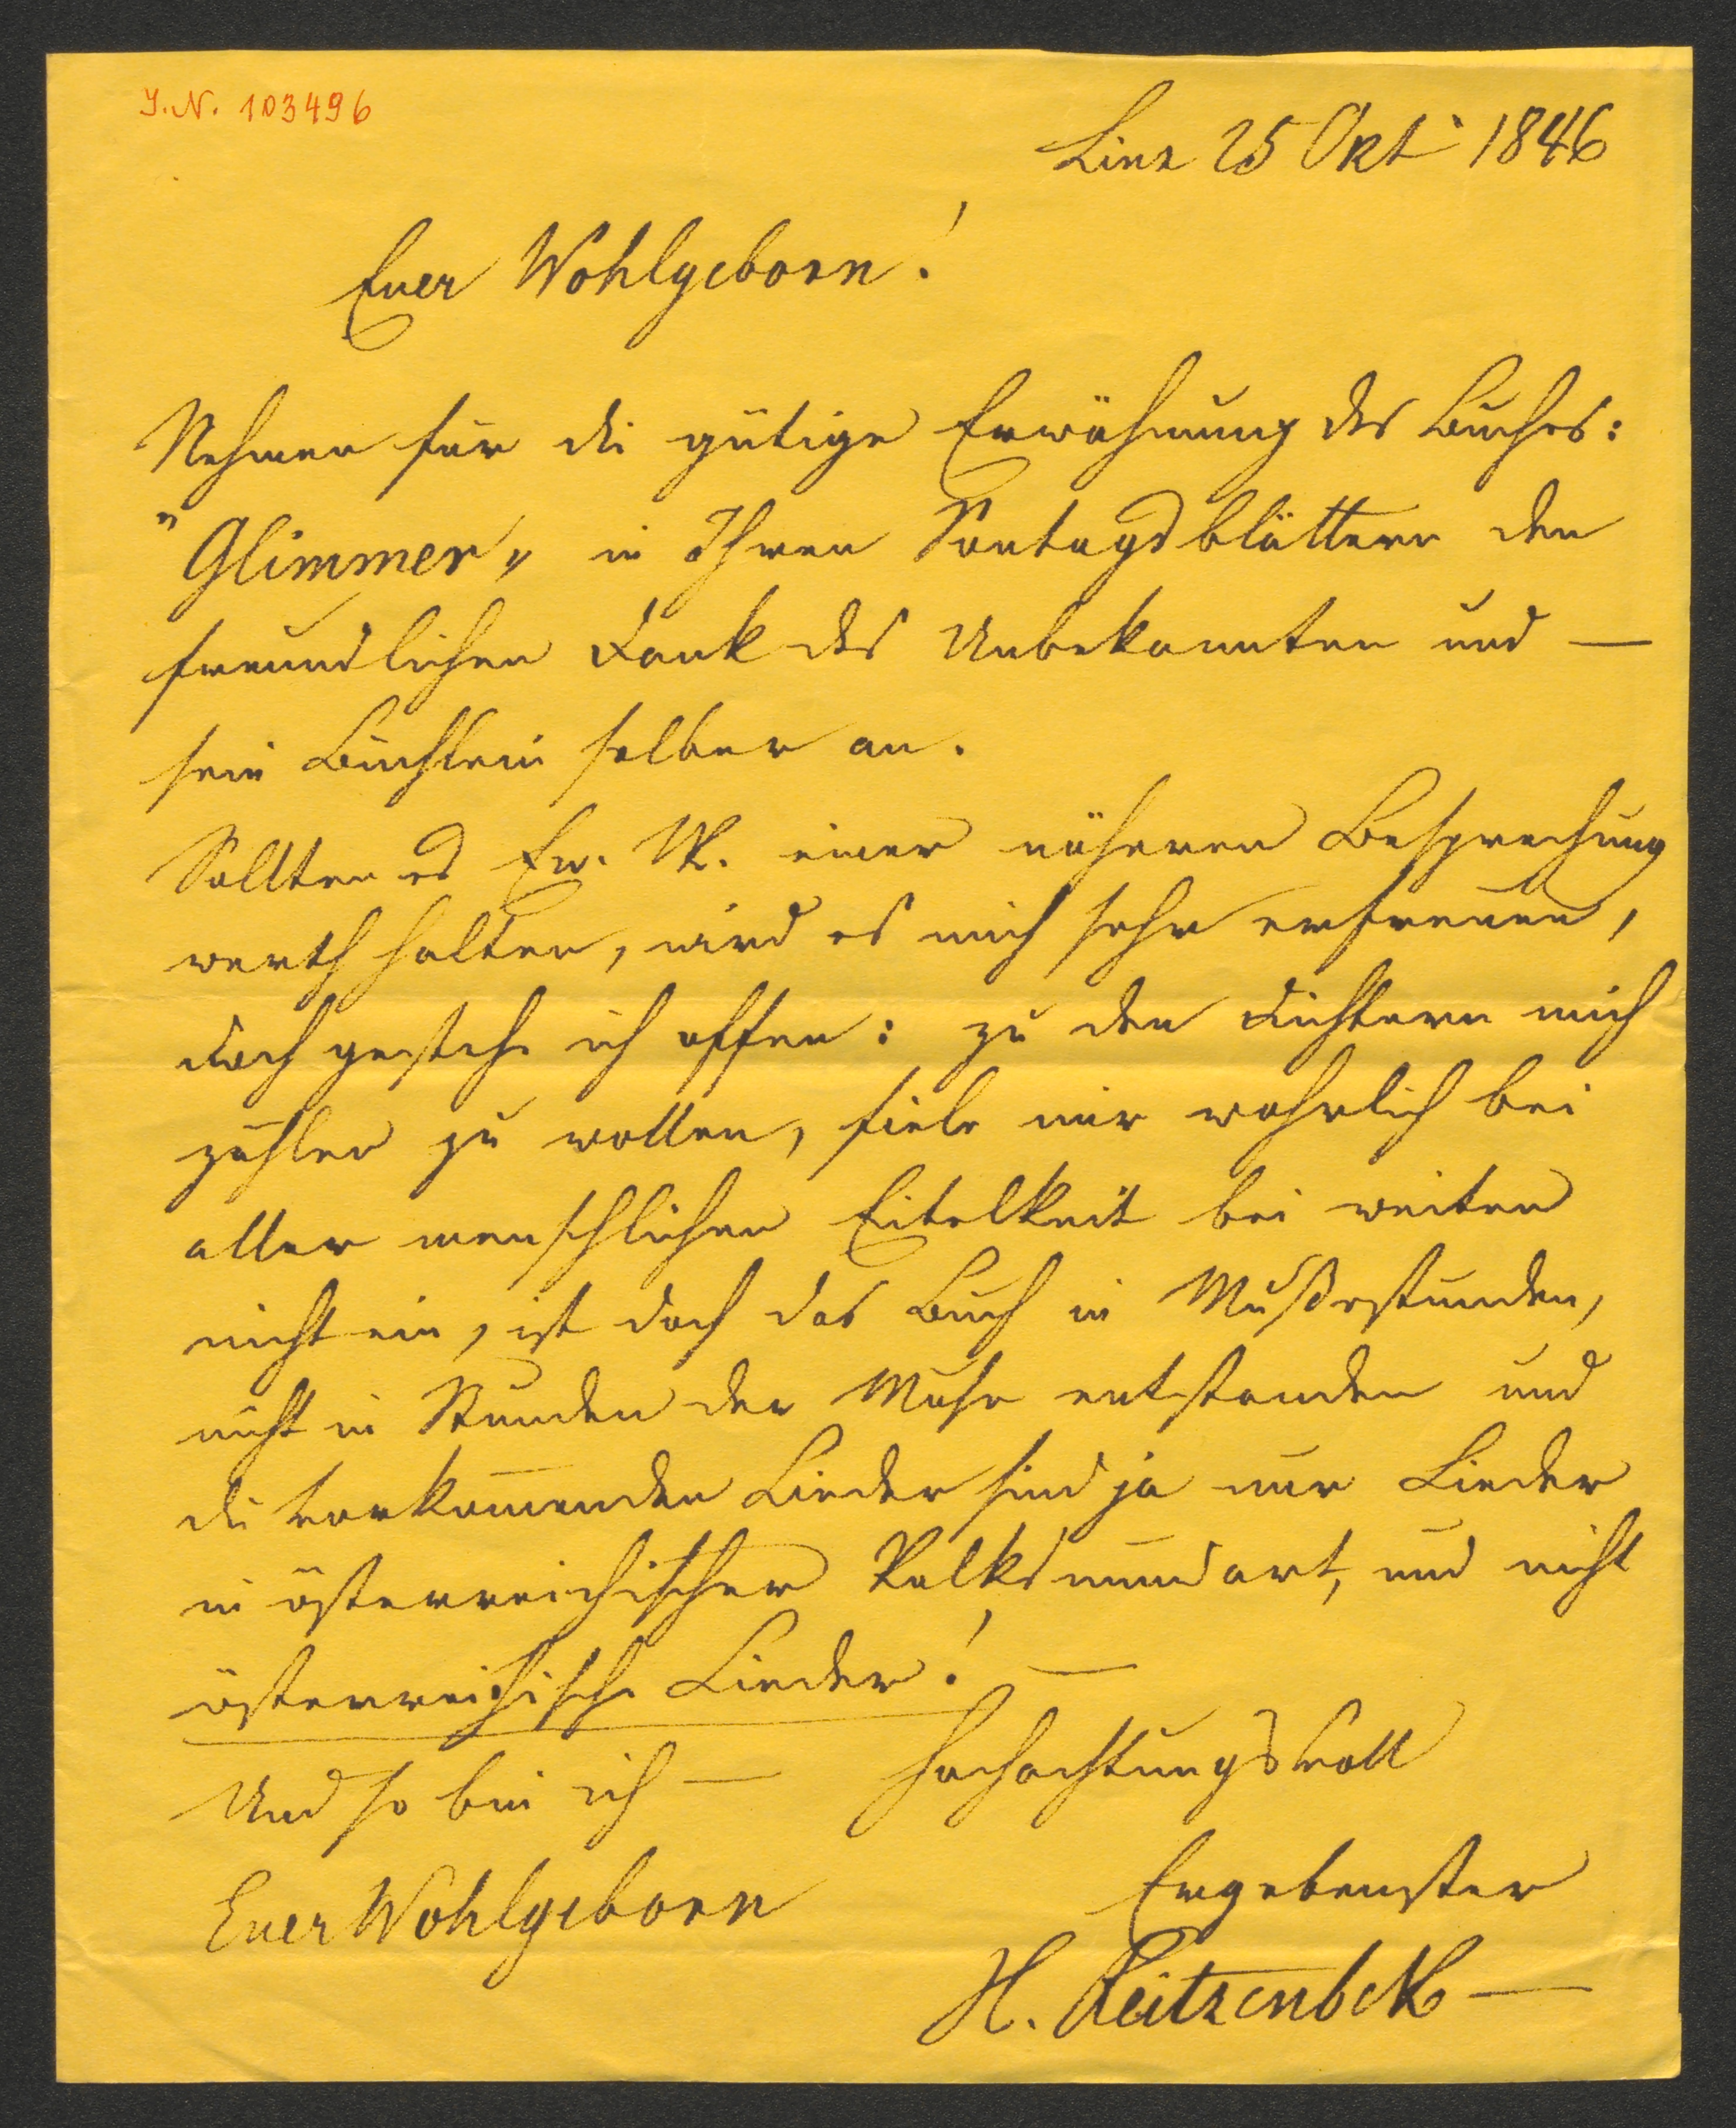 I.N. 103496
Linz 25 Okt 1846
Euer Wohlgeborn!
Nehmen für die gütige Erwähnung des Buches:
"Glimmer" in Ihren Sontagsblättern den
freundlichen Dank des Unbekannten und —
sein Büchlein selber an.
Sollten es Ew. W. einer näheren Besprechung
werth halten, wird es mich sehr erfreuen,
doch gestehe ich offen: zu den Dichtern mich
zählen zu wollen, fiele mir wahrlich bei
aller menschlichen Eitelkeit bei weiten
nicht ein, ist doch das Buch in Mußestunden,
nicht in Stunden der Muse entstanden und
die vorkom̅enden Lieder sind ja nur Lieder
in österreichischer Volksmundart, und nicht
österreichische Lieder! —
Und so bin ich — hochachtungsvoll
Euer Wohlgeborn
Ergebenster
H. Reitzenbek —